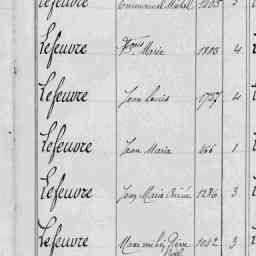 Lefeuvre Emmanuel Michel 1205 3
Lefeuvre Fcois Marie 1815 4
Lefeuvre Jean Louis 1737 4
Lefeuvre Jean Marie 666 1
Lefeuvre Jean Marie 1280 3
Lefeuvre Maximilien Pierre 1042 3